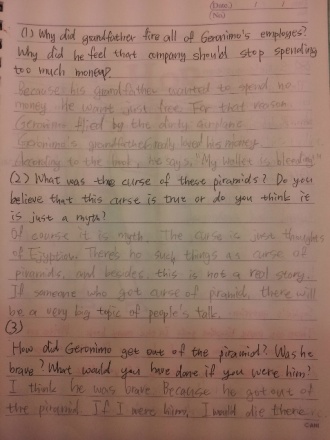 (Date)
(No)
(1) Why did grandfather fire all of Geronimo's employes?
Why did he feel that company should stop spending
too much money?
Because his grandfather wanted to spend no
money he want just free. For that reason
Geronimo flied by the dirty airplane.
Geronimo's grandfather really loved his money
According to the book, he says, "My Wallet is bleeding"
(2) What was the curse of these piramids? Do you
believe that this curse is true or do you think it
is just a myth?
Of course it is myth. The curse is just thoughts
of Egyptian. There's no such things as curse of
piramids, and besides, this is not a real story.
If someone who got curse of piramid, there will
be a very big topic of people's talk.
(3)
How did Geronimo get out of the piramid? Was he
brave? What would you have done if you were him?
I think he was brave Because he got out of
the piramid. If I were him, I would die there